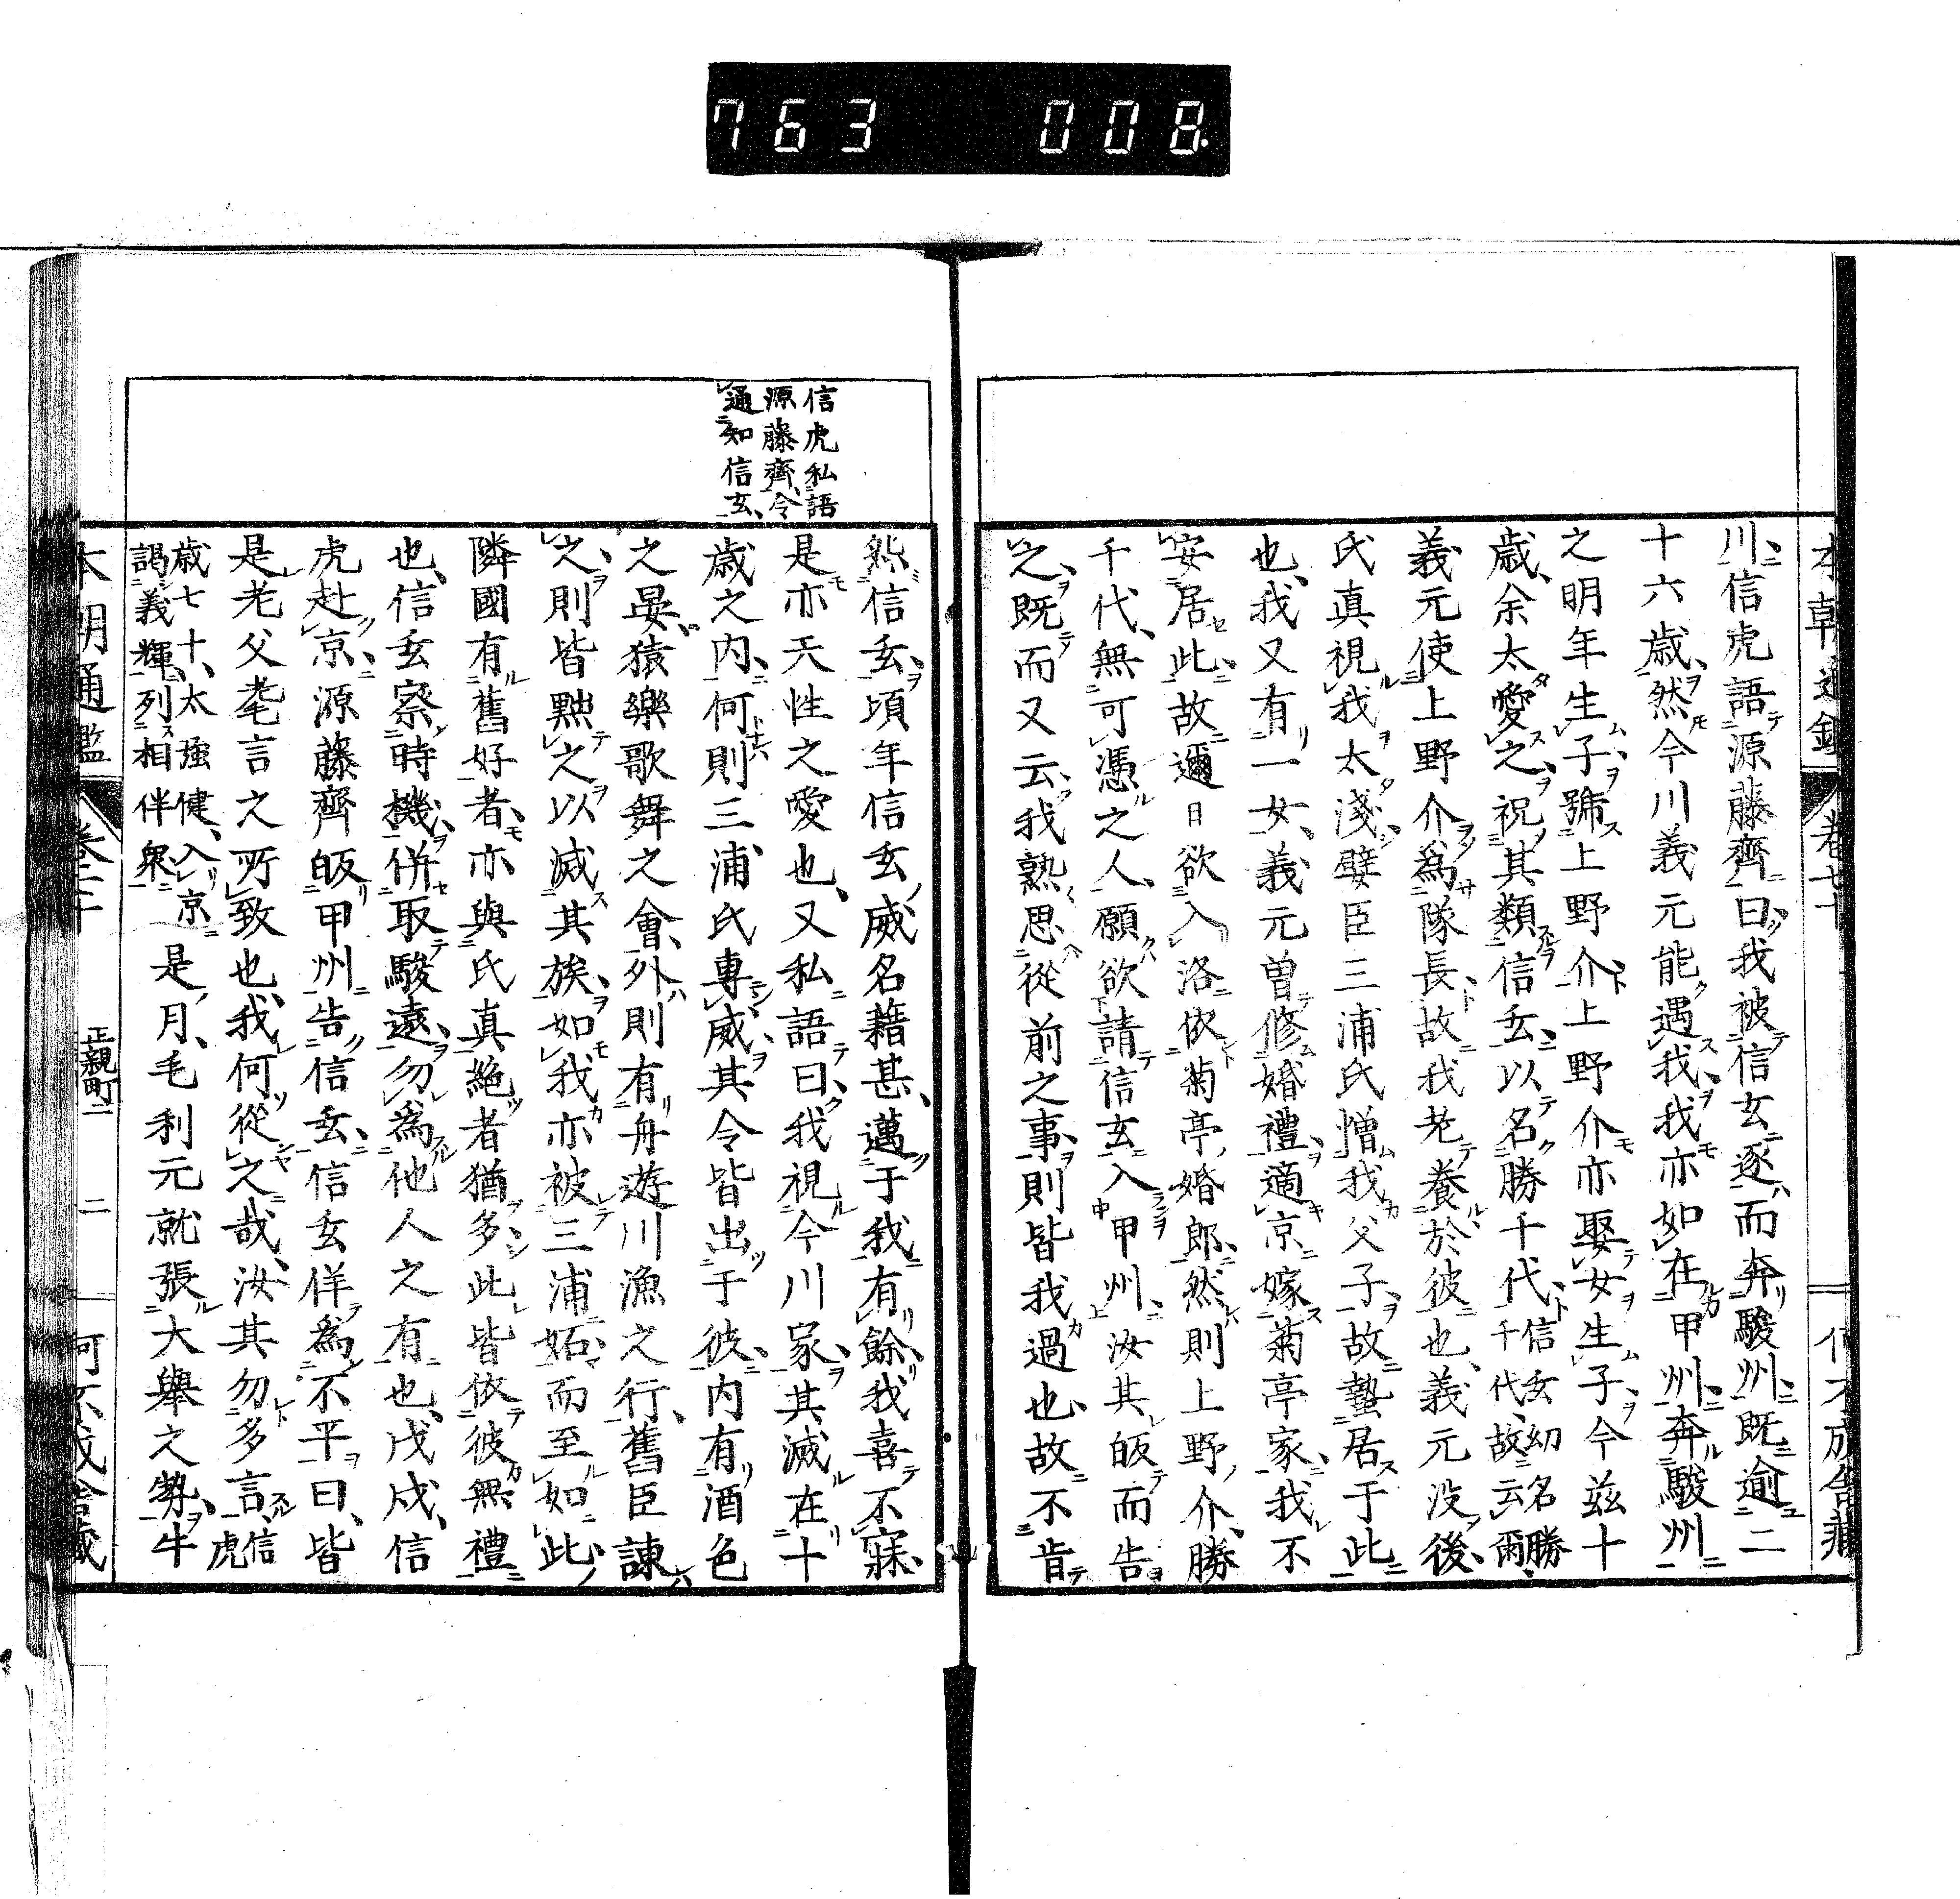 763 008
川信虎語源藤齊曰我被信玄逐而奔駿州既逾二
十六歳然今川義元能遇我我亦如在甲州奔駿州
之明年生子號上野介上野介亦娶女生子今茲十
歳余太愛之祝其類信玄以名勝千代信玄幼名勝千代故云爾
義元使上野介為隊長故我老養於彼也義元没後
氏真視我太淺嬖臣三浦氏憎我父子故蟄居于此
也我又有一女義元曽修婚禮適京嫁菊亭家我不
安居此故邇日欲入洛依菊亭婚郎然則上野介勝
千代無可憑之人願欲請信玄入甲州汝其皈而告
之既而又云我熟思從前之事則皆我過也故不肯
信虎私語
源藤齊令
通知信玄
熊信玄頃年信玄威名藉甚邁于我有餘我喜不寐
是亦天性之愛也又私語曰我視今川家其滅在十
歳之内何則三浦氏專威其令皆出于彼内有酒色
之晏猿樂歌舞之會外則有舟遊川漁之行舊臣諫
之則皆黜之以滅其族如我亦被三浦妬而至如此
隣國有舊好者亦與氏真絶者猶多此皆依彼無禮
也信玄察時機併取駿遠勿為他人之有也戊戍信
虎赴京源藤齊皈甲州告信玄信玄佯為不平曰皆
是老父耄言之所致也我何從之哉汝其勿多言信虎
歳七十太強健入京謁義輝列相伴衆 是月毛利元就張大舉之勢牛
正親町二
二